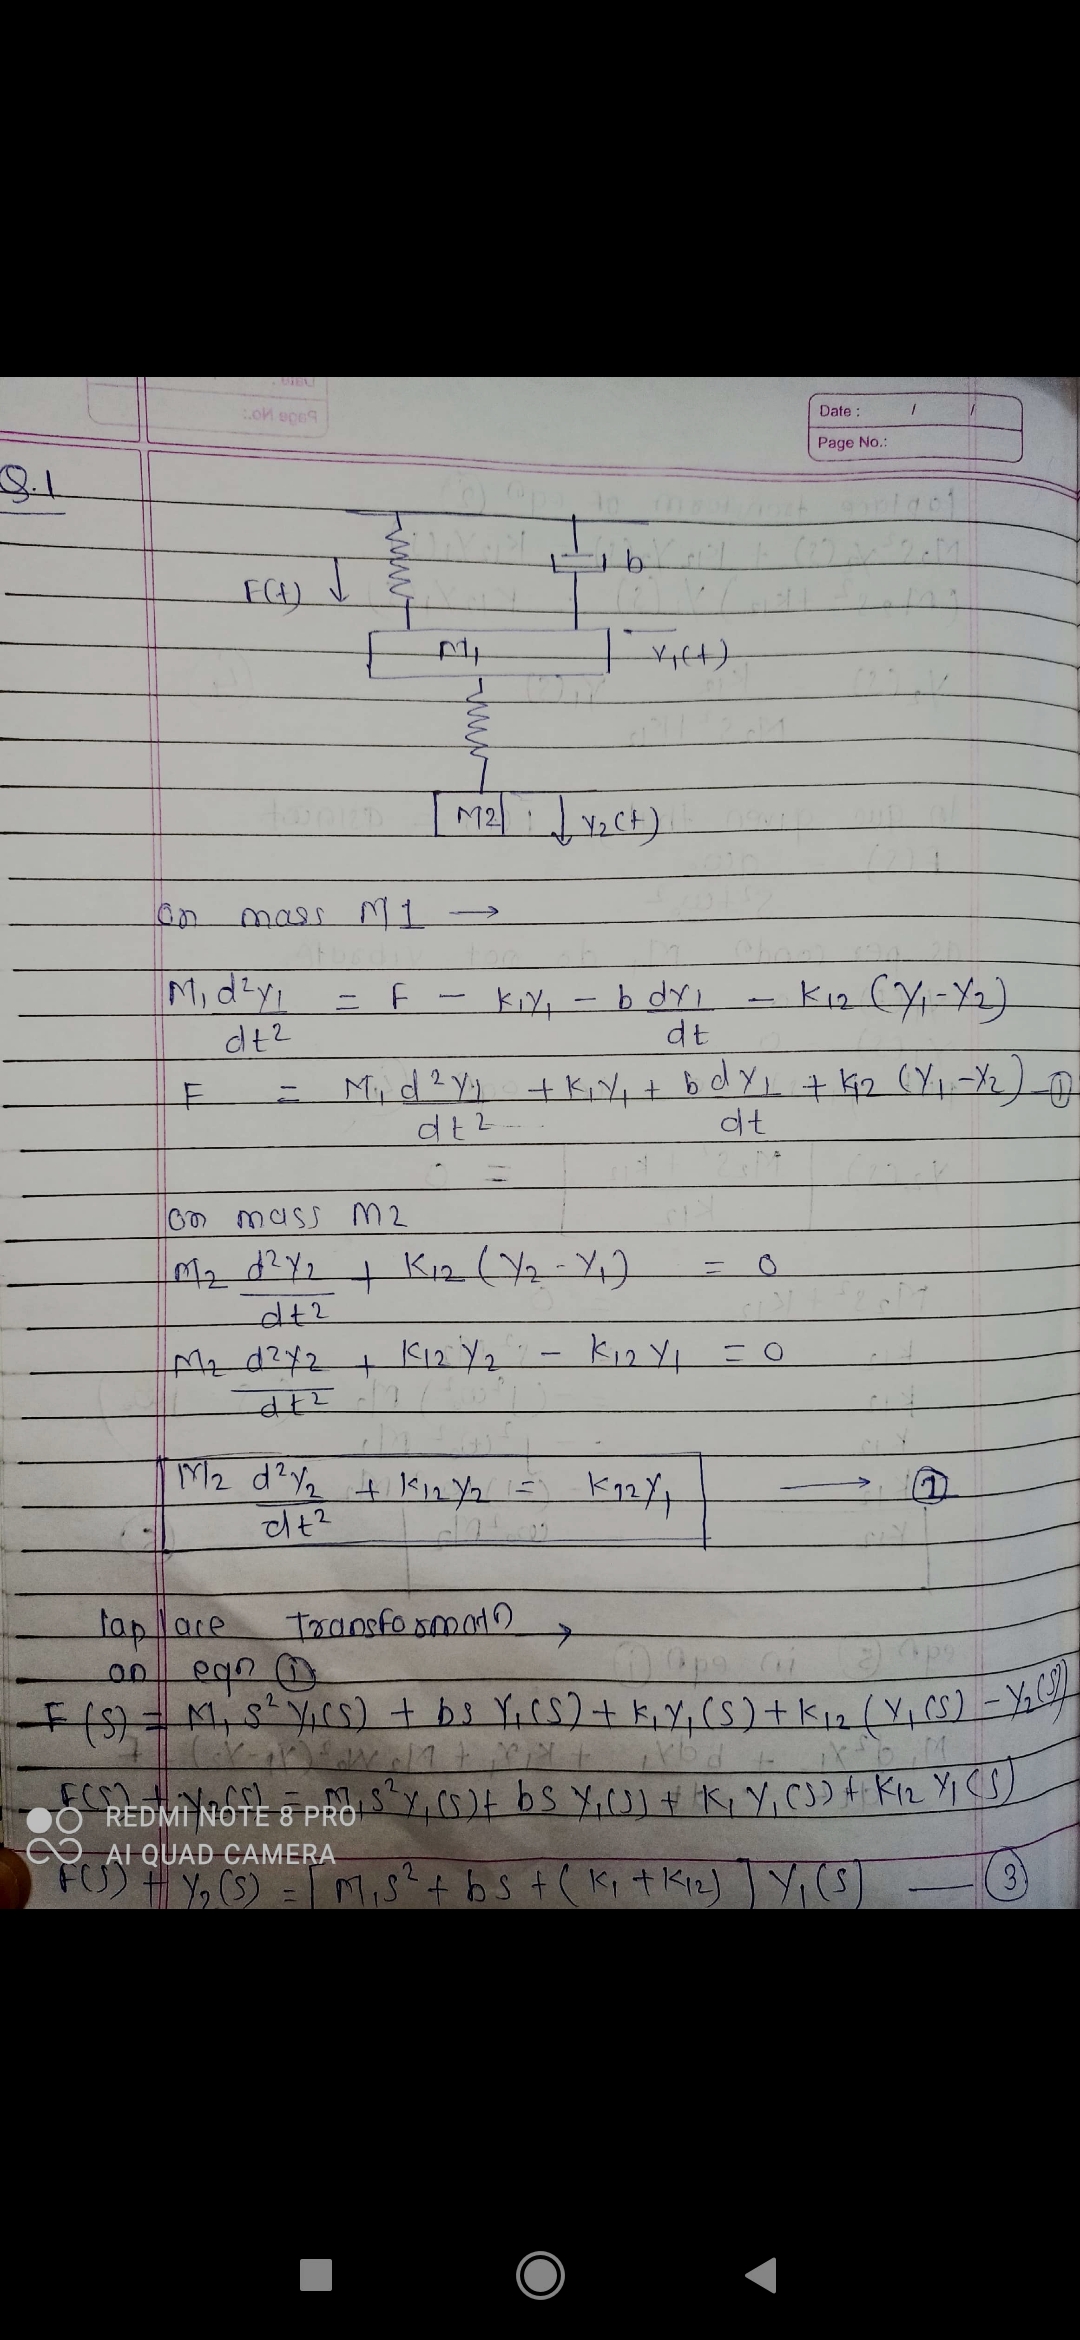 Date : / /
Page No.:
Q.1
F(t) b
M1 Y1(t)
M2 Y2(t)
on mass M1 →
M1 d²Y1/dt² = F - K1Y1 - b dY1/dt - K12 (Y1-Y2)
F = M1 d²Y1/dt² + K1Y1 + b dY1/dt + K12 (Y1-Y2) - ①
on mass M2
M2 d²Y2/dt² + K12 (Y2-Y1) = 0
M2 d²Y2/dt² + K12 Y2 - K12 Y1 = 0
M2 d²Y2/dt² + K12Y2 = K12Y1 →
laplace Transformatn →
on eqn ①
F(S) = M1 S² Y1(S) + bs Y1(S) + K1Y1(S) + K12 (Y1(S) - Y2(S))
F(S) + Y2(S) = M1S²Y1(S) + bS Y1(S) + K1 Y1(S) + K12 Y1(S)
REDMI NOTE 8 PRO
AI QUAD CAMERA
F(S) + Y2(S) = [M1S² + bs + (K1 + K12)] Y1(S) — ③